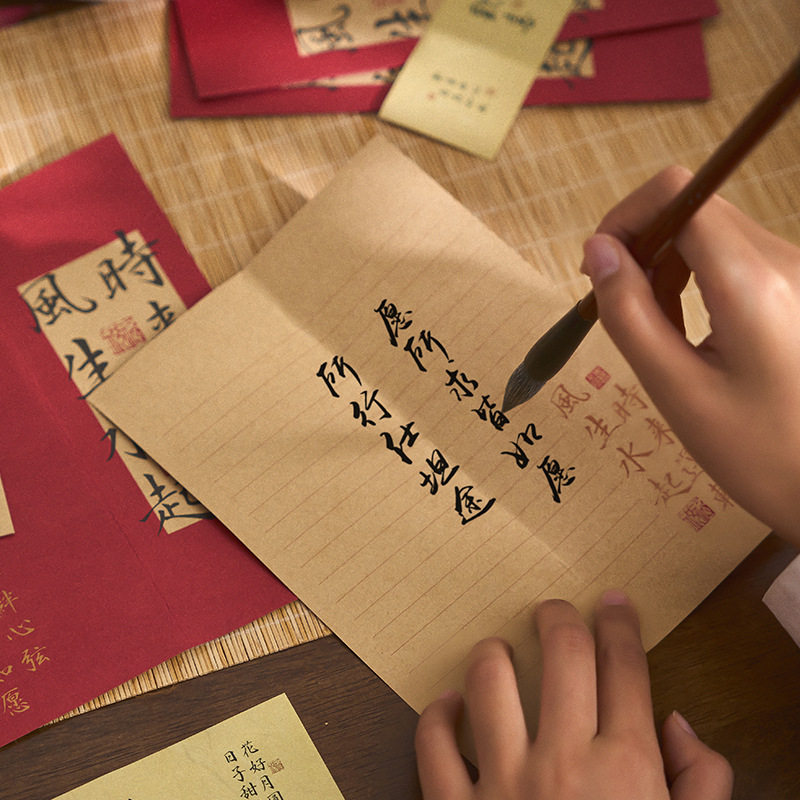 愿所求皆如愿
所行化坦途
時来運轉
風生水起
時来
風生水起
心弦
愿
花好月圆
日子甜